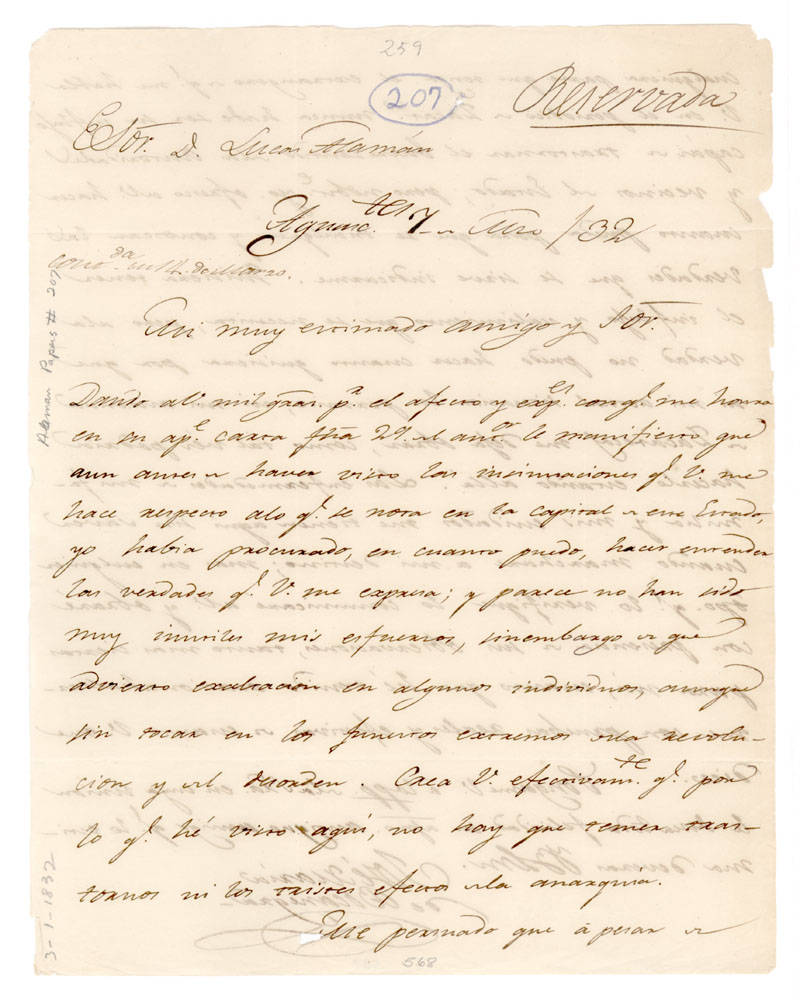 259
207
Reservada
E Sor. D. Lucas Alamán
Aguasc.tes 7 de Mzo /32
contda. en 14. de Marzo.
Mi muy estimado amigo y Sor.
Dando a V. mil gras. pr. el afecto y expres. con q.e me honra
en su ape. carta fha 29. del antor. le manifiesto que
aun antes de haver visto las insinuaciones q.e V. me
hace respecto alo q.e se nota en la capital de este Estado,
yo habia procurado, en cuanto puedo, hacer entender
las verdades q.e V. me expresa; y parece no han sido
muy inutiles mis esfuerzos, sinembargo de que
advierto exaltacion en algunos individuos, aunque
sin tocar en los funestos extremos dela revolu-
cion y del desorden. Crea V. efectivam.te q.e por
lo q.e hé visto aquí, no hay que temer tras-
tornos ni los tristes efectos dela anarquía.
Me persuado que á pesar de
568
Alaman Papers # 207
3-1-1832